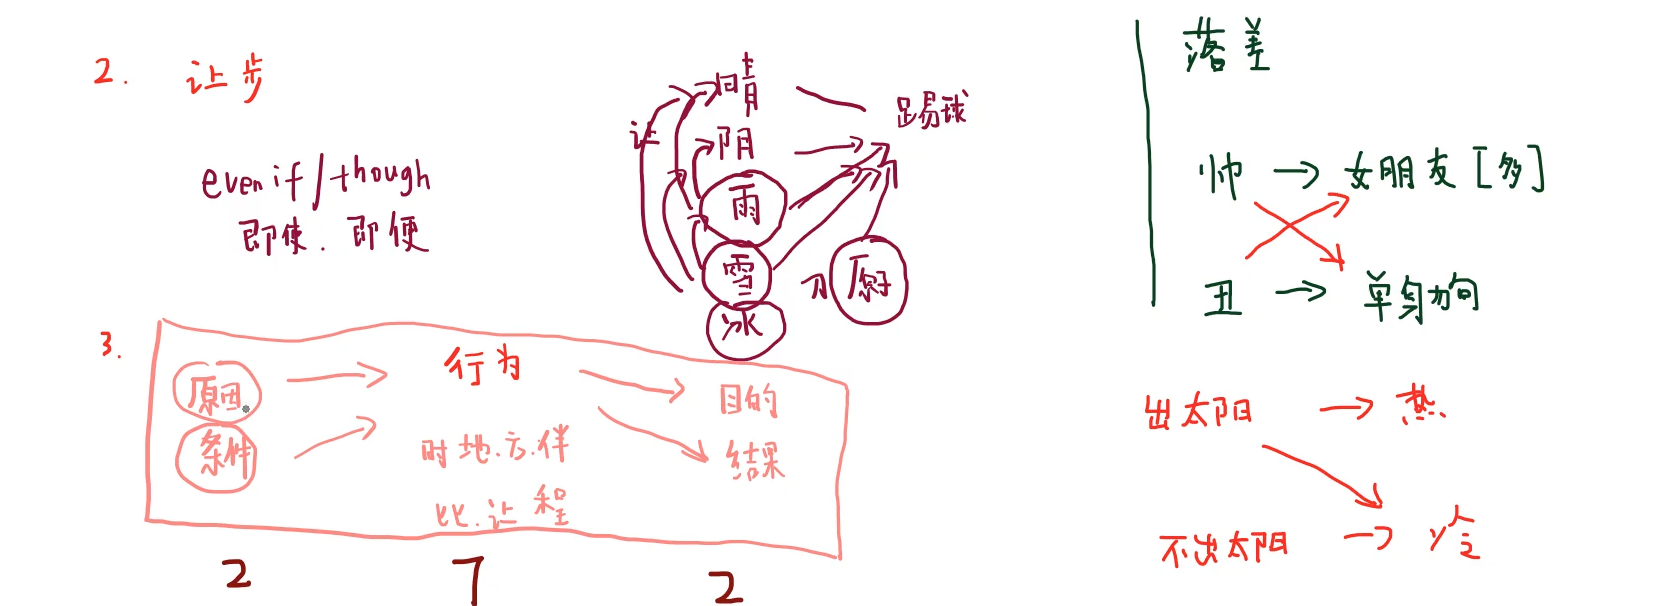 2. 让步
even if/though
即使. 即便
让
晴
阴
雨
雪
冰
踢球
刀
3.
原因
条件
行为
时地.方.伴
比.让程
目的
结果
2 7 2
落差
帅 → 女朋友[多]
丑 → 单身狗
出太阳 → 热
不出太阳 → 冷